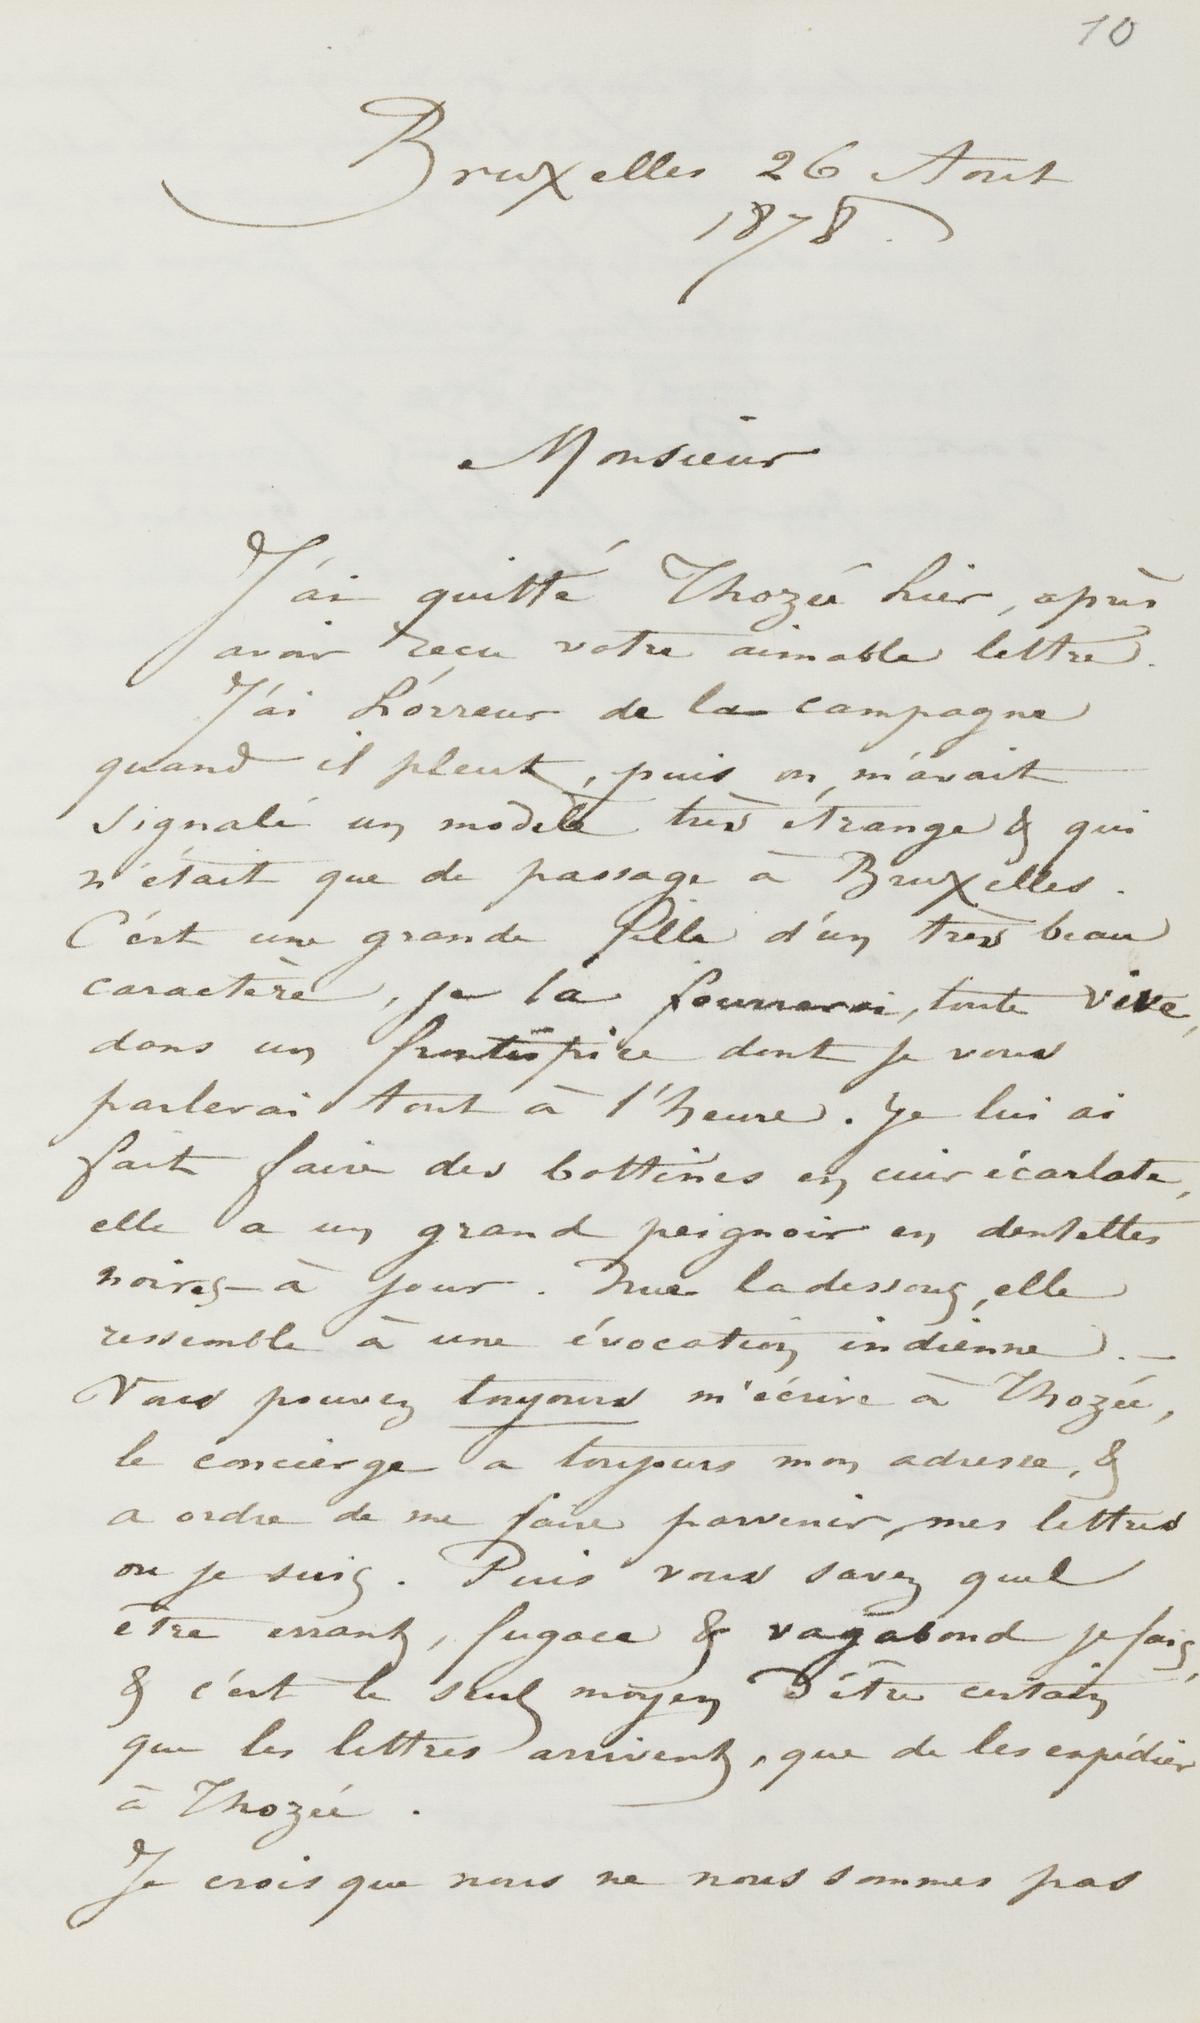 10
Bruxelles 26 Aout
1878.
Monsieur
J'ai quitté Thozée hier, après
avoir reçu votre aimable lettre.
J'ai l'horreur de la campagne
quand il pleut, puis on m'avait
signalé un modèle très étrange & qui
n'était que de passage à Bruxelles.
C'est une grande fille d'un très beau
caractère, je la fourrerai, toute vive,
dans un frontispice dont je vous
parlerai tout à l'heure. Je lui ai
fait faire des bottines en cuir écarlate,
elle a un grand peignoir en dentelles
noires à jour. Nue ladessous, elle
ressemble à une évocation indienne. —
Vous pouvez toujours m'écrire à Thozée,
le concierge a toujours mon adresse, &
a ordre de me faire parvenir mes lettres
ou je suis. Puis vous savez quel
être errant, fugace & vagabond je fais,
& c'est le seul moyen d'être certain
que les lettres arrivent, que de les expédier
à Thozée.
Je crois que nous ne nous sommes pas